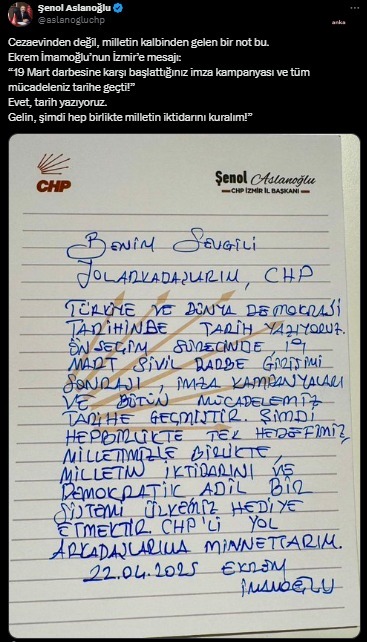 Şenol Aslanoğlu
@aslanogluchp
anka
Cezaevinden değil, milletin kalbinden gelen bir not bu.
Ekrem İmamoğlu'nun İzmir'e mesajı:
"19 Mart darbesine karşı başlattığınız imza kampanyası ve tüm
mücadeleniz tarihe geçti!"
Evet, tarih yazıyoruz.
Gelin, şimdi hep birlikte milletin iktidarını kuralım!"
CHP
Şenol Aslanoğlu
CHP İZMİR İL BAŞKANI
BENİM SEVGİLİ
YOL ARKADAŞLARIM, CHP
TÜRKİYE VE DÜNYA DEMOKRASİ
TARİHİNDE TARİH YAZIYORUZ.
ÖN SEÇİM SÜRECİNDE, 19
MART SİVİL DARBE GİRİŞİMİ
SONRASI, İMZA KAMPANYALARI
VE BÜTÜN MÜCADELEMİZ
TARİHE GEÇMİŞTİR. ŞİMDİ
HEPBİRLİKTE TEK HEDEFİMİZ,
MİLLETİMİZLE BİRLİKTE,
MİLLETİN İKTİDARINI VE
DEMOKRATİK ADİL BİR
SİSTEMİ ÜLKEMİZE HEDİYE
ETMEKTİR. CHP'Lİ YOL
ARKADAŞLARIMA MİNNETTARIM.
22.04.2025 EKREM
İMAMOĞLU